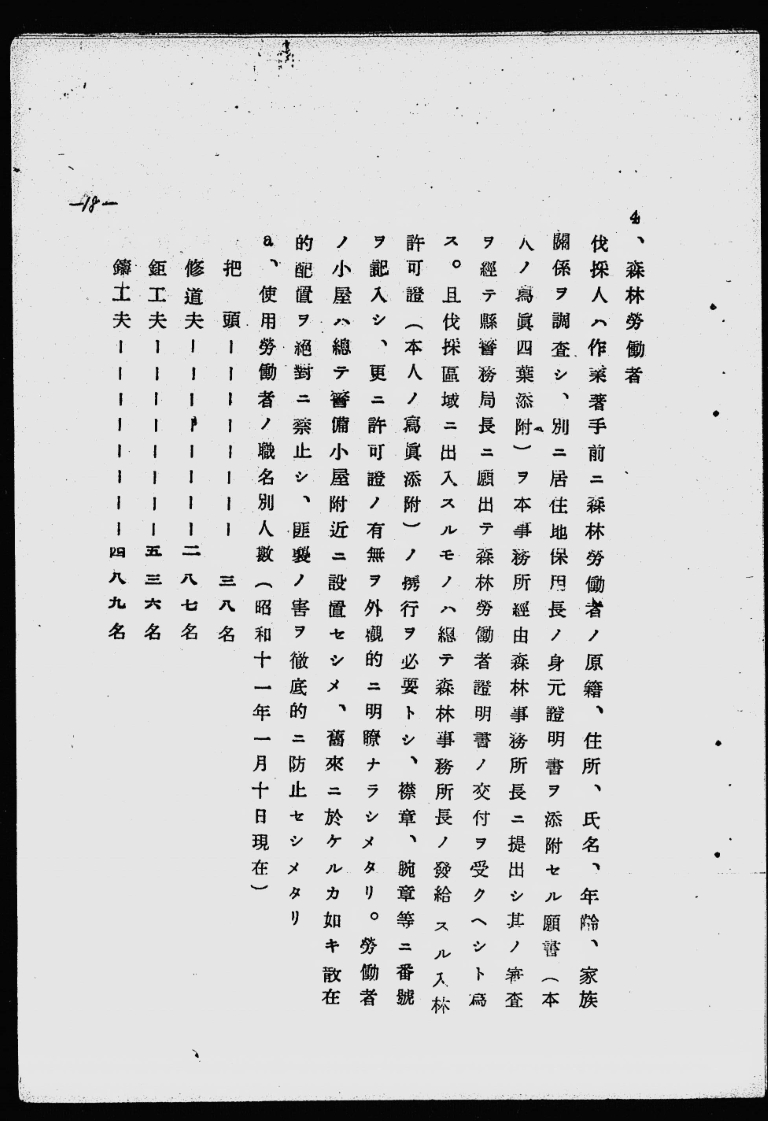 4、森林勞働者
伐採人ハ作業著手前ニ森林勞働者ノ原籍、住所、氏名、年齡、家族
關係ヲ調査シ、別ニ居住地保甲長ノ身元證明書ヲ添附セル願書（本
人ノ寫眞四葉添附）ヲ本事務所經由森林事務所長ニ提出シ其ノ審査
ヲ經テ縣警務局長ニ願出テ森林勞働者證明書ノ交付ヲ受クヘシト爲
ス。且伐採區域ニ出入スルモノハ總テ森林事務所長ノ發給スル入林
許可證（本人ノ寫眞添附）ノ携行ヲ必要トシ、襟章、腕章等ニ番號
ヲ記入シ、更ニ許可證ノ有無ヲ外觀的ニ明瞭ナラシメタリ。勞働者
ノ小屋ハ總テ警備小屋附近ニ設置セシメ、舊來ニ於ケルカ如キ散在
的配置ヲ絕對ニ禁止シ、匪襲ノ害ヲ徹底的ニ防止セシメタリ
a、使用勞働者ノ職名別人數（昭和十一年一月十日現在）
把頭ーーーーーーーー三八名
修道夫ーーーーーーーー二八七名
鉅工夫ーーーーーーーー五三六名
鑄工夫ーーーーーーーー四八九名
—18—